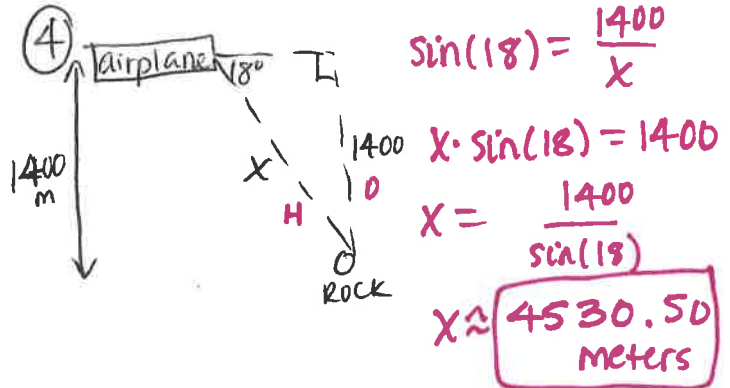 ④
airplane
18°
1400
m
1400
X
O
H
ROCK
sin(18) = 1400/X
X· sin(18) = 1400
X = 1400/sin(18)
X ≈ 4530.50
meters